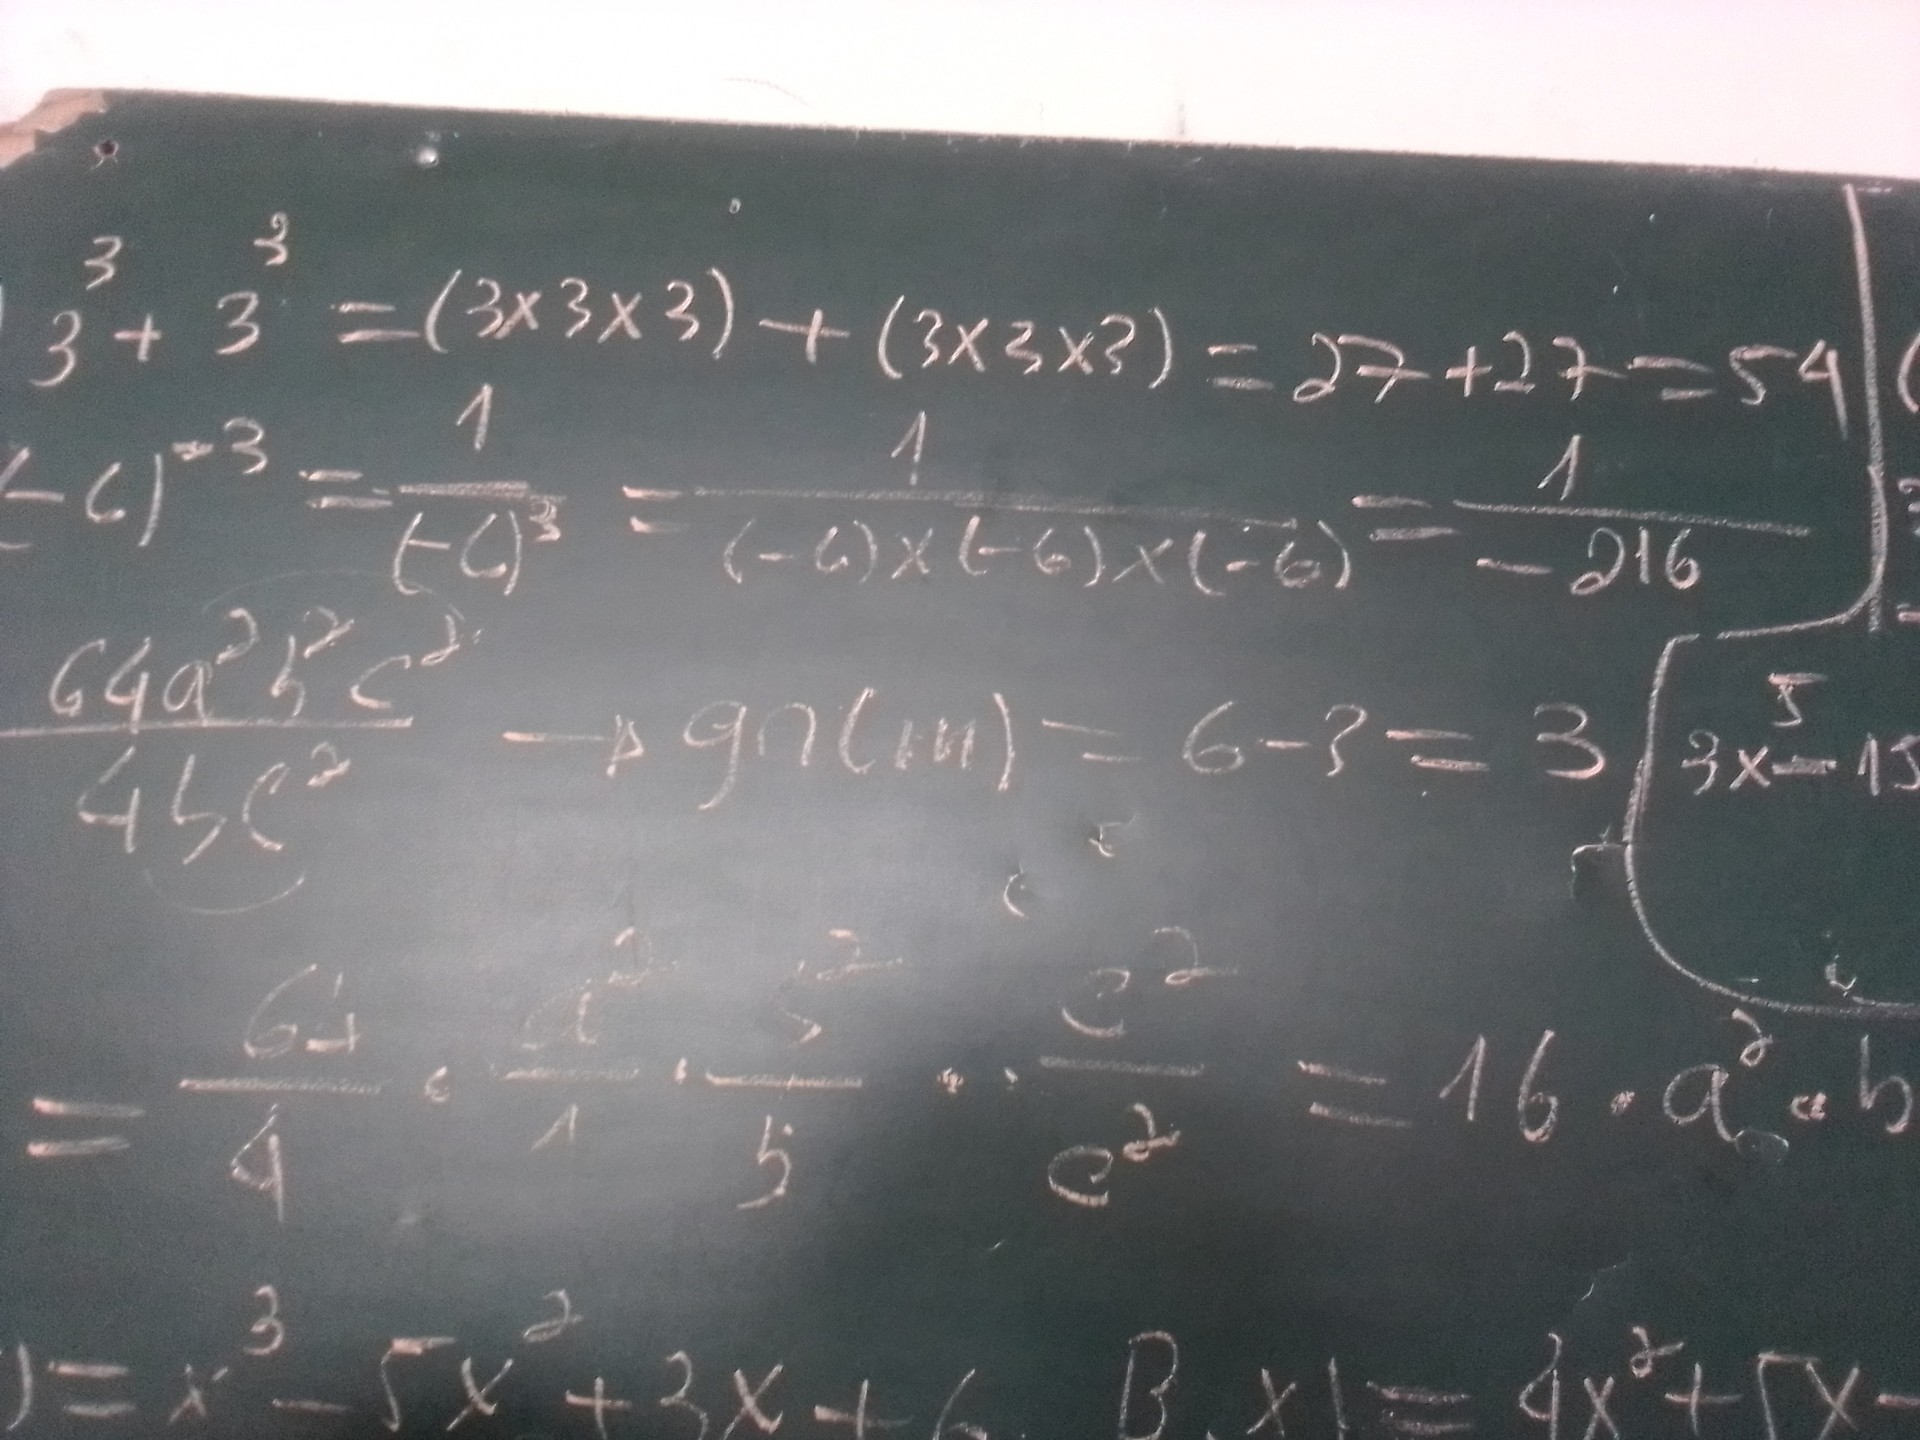 3³ + 3³ = (3x3x3) + (3x3x3) = 27 + 27 = 54
(-6)⁻³ = 1/(-6)³ = 1/((-6)x(-6)x(-6)) = 1/-216
64a²b²c²/4bc² → gr(m) = 6 - 3 = 3
3x⁵ - 15
= 64/4 · a²/1 · b²/b · c²/c² = 16 · a² · b
) = x³ - 5x² + 3x + 6 B(x) = 4x² + 5x -